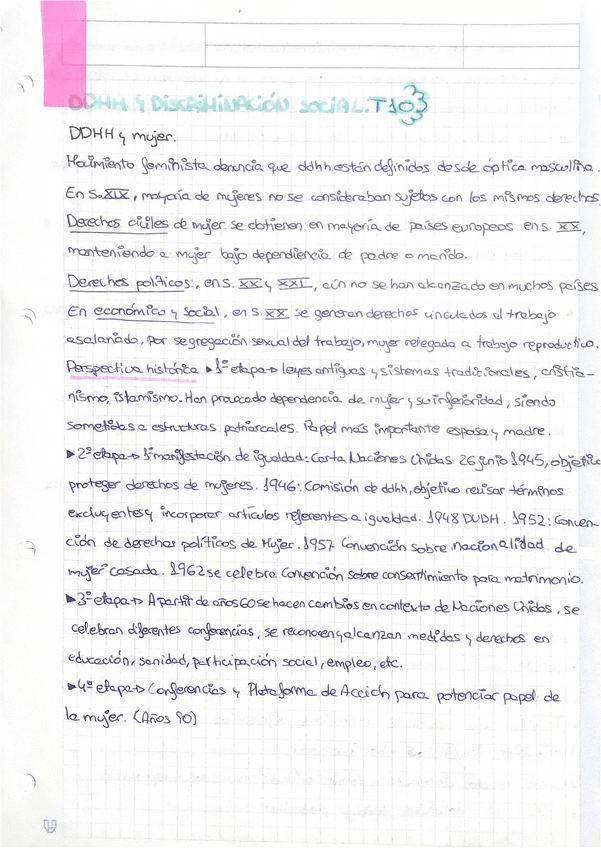 DDHH Y DISCRIMINACIÓN SOCIAL. T10
DDHH y mujer.
Movimiento feminista denuncia que ddhh están definidos desde óptica masculina.
En S. XIX, mayoría de mujeres no se consideraban sujetos con los mismos derechos,
Derechos civiles de mujer se obtienen en mayoría de países europeos en S. XX,
manteniendo a mujer bajo dependiencia de padre o marido.
Derechos políticos:, en S. XX y XXI, aún no se han alcanzado en muchos países
En económico y social, en S. XX se generan derechos vinculados al trabajo
asalariado, por segregación sexual del trabajo, mujer relegada a trabajo reproductivo.
Perspectiva histórica ▸ 1ª etapa → leyes antiguas y sistemas tradicionales, cristia-
nismo, islamismo. Han provocado dependencia de mujer y su inferioridad, siendo
sometidas a estructuras patriarcales. Papel más importante esposa y madre.
▸ 2ª etapa → 1ª manifestación de igualdad: Carta Naciones Unidas 26 junio 1945, objetivo
proteger derechos de mujeres. 1946: Comisión de ddhh, objetivo revisar términos
excluyentes y incorporar artículos referentes a igualdad. 1948 DUDH. 1952: Conven-
ción de derechos políticos de Mujer. 1957 Convención sobre nacionalidad de
mujer casada. 1962 se celebra Convención sobre consentimiento para matrimonio.
▸ 3ª etapa → A partir de años 60 se hacen cambios en contexto de Naciones Unidas, se
celebran diferentes conferencias, se reconocen y alcanzan medidas y derechos en
educación, sanidad, participación social, empleo, etc.
▸ 4ª etapa → Conferencias y Plataforma de Acción para potenciar papel de
la mujer. (Años 90)